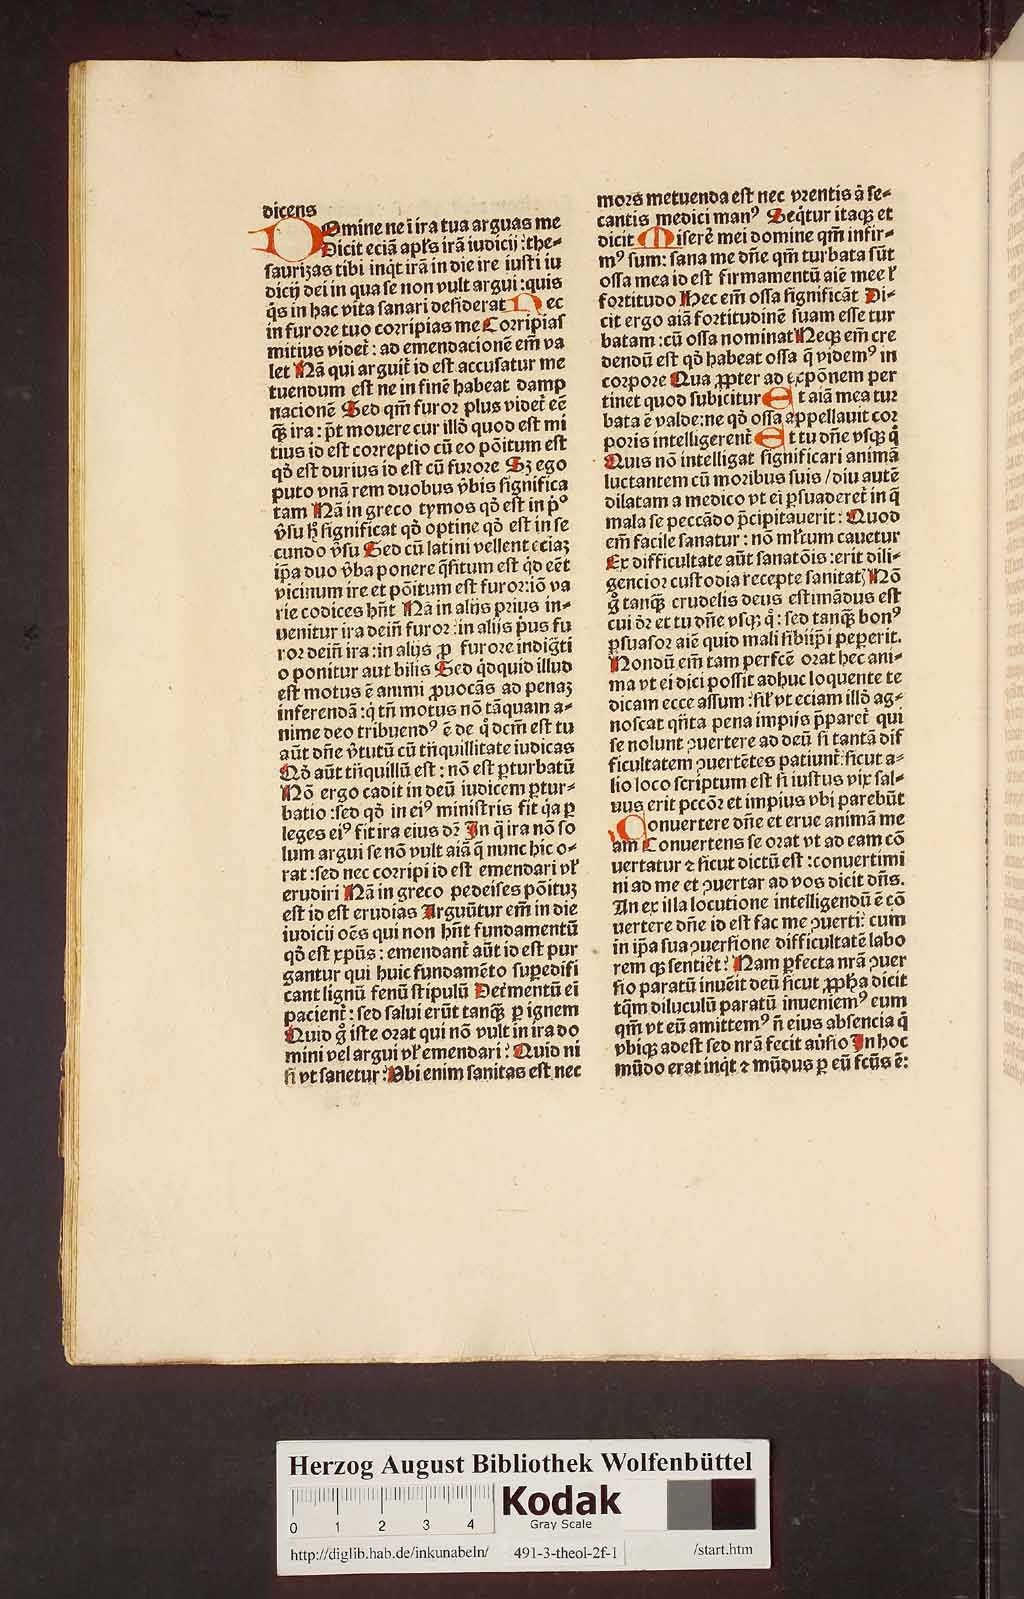 dicens
Domine ne ī ira tua arguas me
Dicit eciā apl's irā iudicij : the-
saurizas tibi inqt irā in die ire iusti iu
dicij dei in qua se non vult argui : quis
q̄s in hac vita sanari desiderat Nec
in furore tuo corripias me Corripias
mitius videt : ad emendacionē em̄ va
let Nā qui arguit id est accusatur me
tuendum est ne in finē habeat damp
nacionē Sed qm̄ furor plus videt eē
q̄ ira : pt mouere cur illō quod est mi
tius id est correptio cū eo pōitum est
qd̄ est durius id est cū furore Sz ego
puto vnā rem duobus v̄bis significa
tam Nā in greco tymos qd̄ est in p̄°
v̄su h' significat qd̄ optine qd̄ est in se
cundo v̄su Sed cū latini vellent eciaz
ip̄a duo v̄ba ponere q̄situm est qd̄ eēt
vicinum ire et pōitum est furor : iō va
rie codices hn̄t Nā in alijs prius in-
uenitur ira dein̄ furor : in alijs p̄us fu
ror dein̄ ira : in alijs ꝓ furore indiḡti
o ponitur aut bilis Sed qdquid illud
est motus ē animi ꝓuocās ad penaz
inferendā : q̄ tn̄ motus nō tāquam a-
nime deo tribuendꝰ ē de q° dc̄m est tu
aūt dn̄e v̄tutū cū tn̄quillitate iudicas
Qd̄ aūt tn̄quillū est : nō est ꝑturbatū
Nō ergo cadit in deū iudicem ꝑtur-
batio : sed qd̄ in eiꝰ ministris fit q̄a ꝑ
leges eiꝰ fit ira eius dr̄ In q̄ ira nō so
lum argui se nō vult aiā q̄ nunc hic o-
rat : sed nec corripi id est emendari vl'
erudiri Nā in greco pedeises pōituz
est id est erudias Arguūtur em̄ in die
iudicij oēs qui non hn̄t fundamentū
qd̄ est xp̄us : emendant aūt id est pur
gantur qui huic fundamēto suꝑedifi
cant lignū fenū stipulū Detmentū ei
pacient : sed salui erūt tanq̄ ꝑ ignem
Quid g° iste orat qui nō vult in ira do
mini vel argui vl' emendari : Quid ni
si vt sanetur : Vbi enim sanitas est nec
mors metuenda est nec vrentis ā se-
cantis medici manꝰ Seq̄tur itaqꝫ et
dicit Miserē mei domine qm̄ infir-
mꝰ sum : sana me dn̄e qm̄ turbata sūt
ossa mea id est firmamentū aīe mee l'
fortitudo Hec em̄ ossa significāt Di-
cit ergo aiā fortitudinē suam esse tur
batam : cū ossa nominat Neqꝫ em̄ cre
dendū est qd̄ habeat ossa q̄ videmꝰ in
corpore Qua ꝓpter ad expōnem per
tinet quod subicitur Et aiā mea tur
bata ē valde : ne qd̄ ossa appellauit cor
poris intelligerent Et tu dn̄e vsqꝫ q°
Quis nō intelligat significari animā
luctantem cū moribus suis / diu autē
dilatam a medico vt ei ꝑsuaderet in q̄
mala se peccādo p̄cipitauerit : Quod
em̄ facile sanatur : nō ml'tum cauetur
Ex difficultate aūt sanatōis : erit dili-
gencior custodia recepte sanitat Nō
g° tanq̄ crudelis deus estimādus est
cui dr̄ et tu dn̄e vsqꝫ q° : sed tanq̄ bonꝰ
ꝑsuasor aīe quid mali sibiip̄i peperit.
Nondū em̄ tam perfcē orat hec ani-
ma vt ei dici possit adhuc loquente te
dicam ecce assum : sil' vt eciam illō ag-
noscat qn̄ta pena impijs p̄paret qui
se nolunt ꝯuertere ad deū si tantā dif
ficultatem ꝯuertētes patiunt : sicut a-
lio loco scriptum est si iustus vix sal-
uus erit pccōr et impius vbi parebūt
Conuertere dn̄e et erue animā me
am Conuertens se orat vt ad eam cō
uertatur ⁊ sicut dictū est : conuertimi
ni ad me et ꝯuertar ad vos dicit dn̄s.
An ex illa locutione intelligendū ē cō
uertere dn̄e id est fac me ꝯuerti : cum
in ip̄a sua ꝯuersione difficultatē labo
rem qꝫ sentiēt : Nam ꝑfecta nrā ꝯuer
sio paratū inueit deū sicut ꝓpha dicit
tq̄m diluculū paratū inueniemꝰ eum
qm̄ vt eū amittemꝰ n̄ eius absencia q̄
vbiqꝫ adest sed nrā fecit au̇sio In hoc
mūdo erat inqt ⁊ mūdus ꝑ eū fcūs ē :
Herzog August Bibliothek Wolfenbüttel
0 1 2 3 4
Kodak
Gray Scale
http://diglib.hab.de/inkunabeln/ 491-3-theol-2f-1 /start.htm